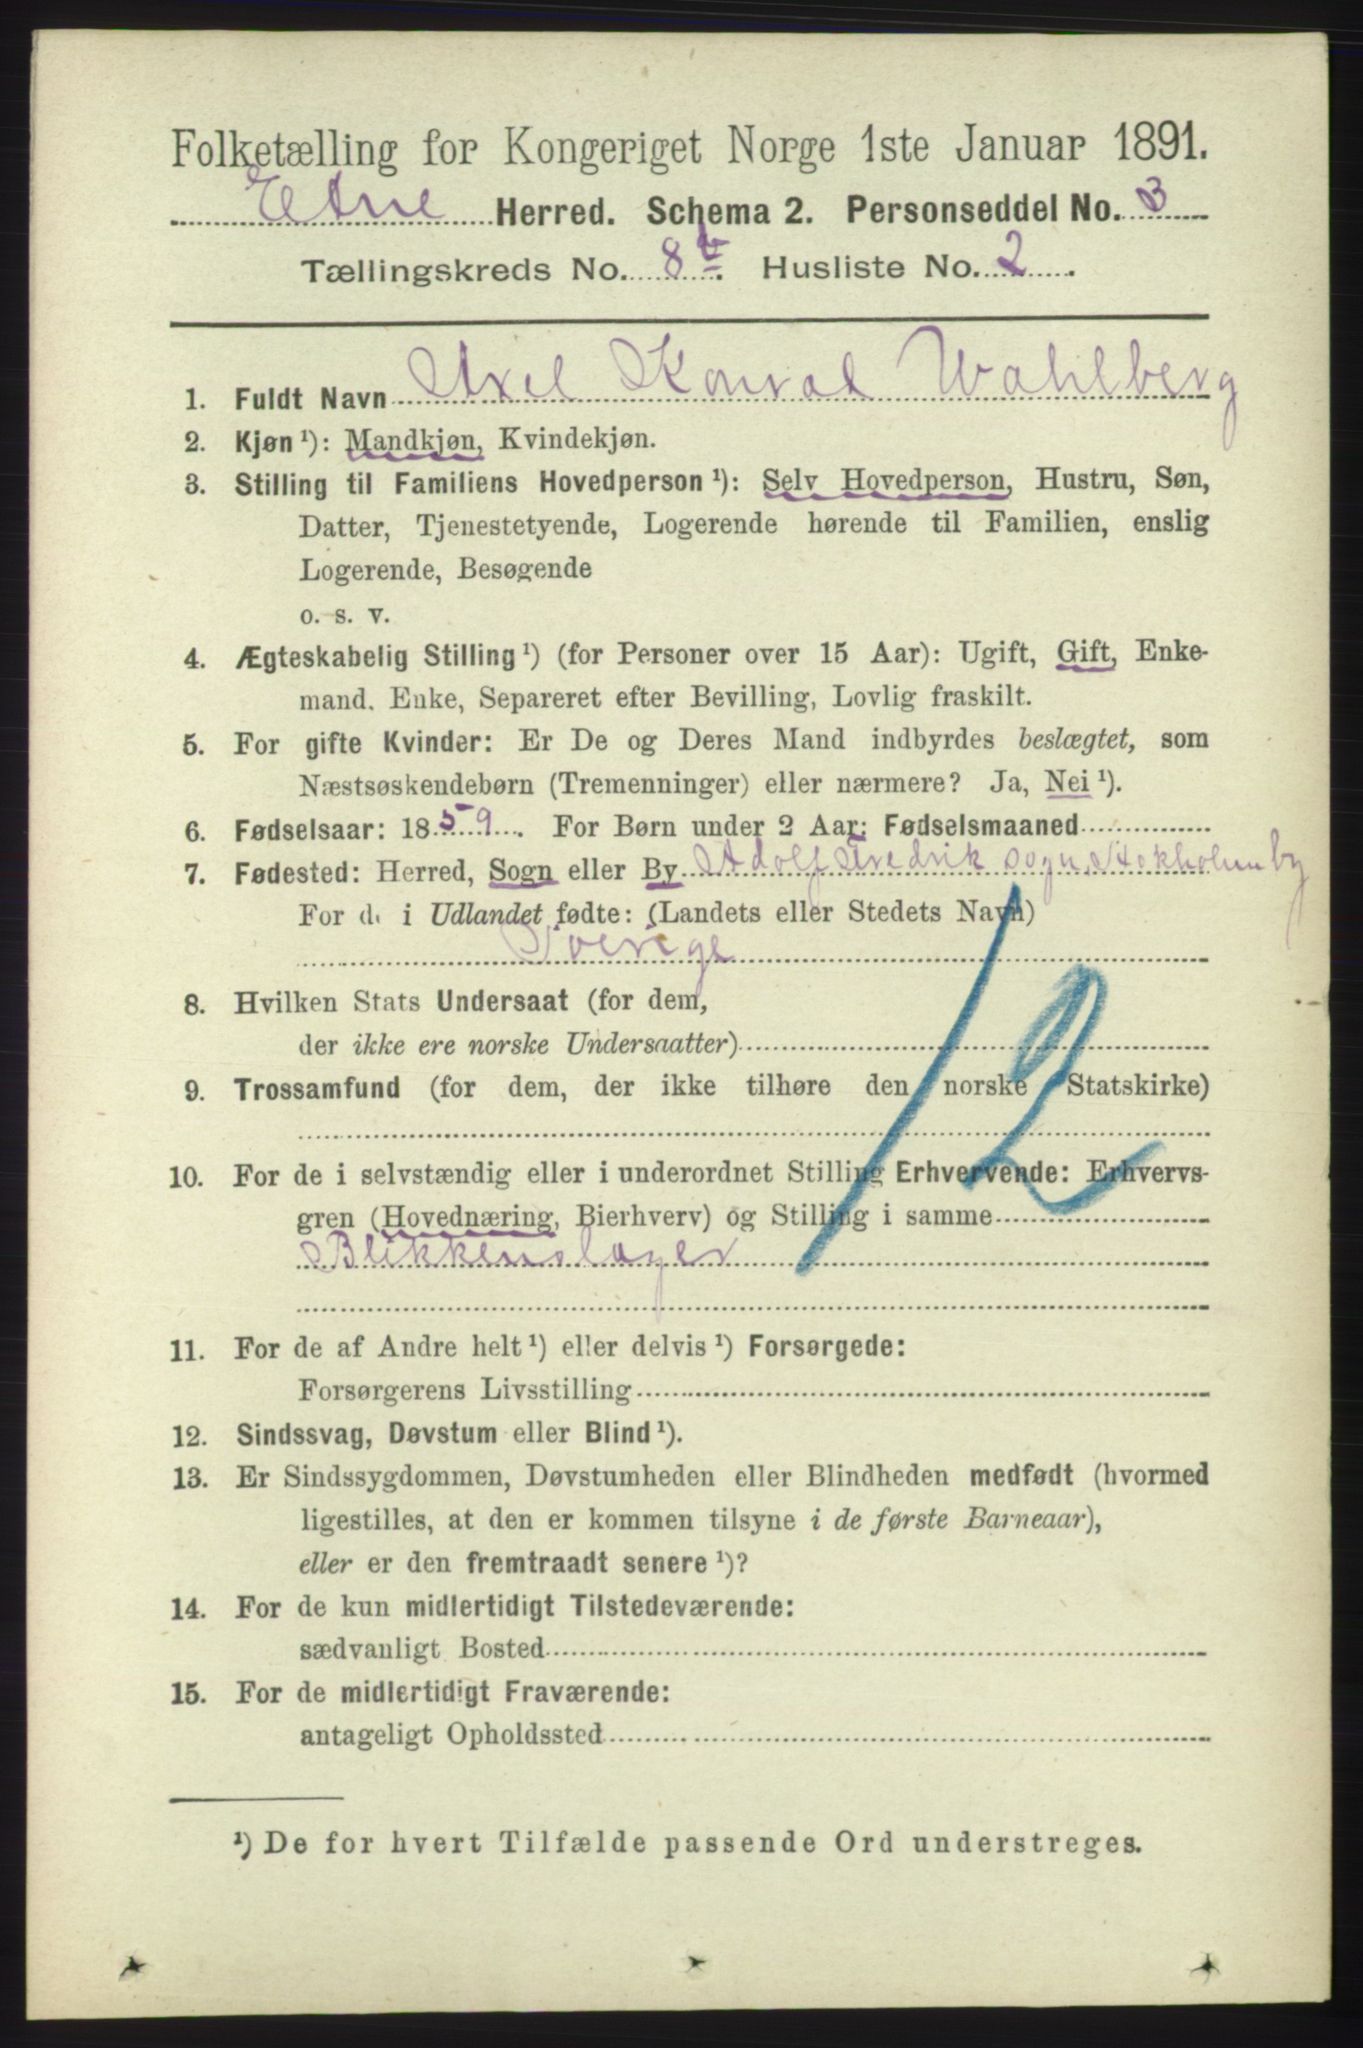 Folketælling for Kongeriget Norge 1ste Januar 1891.
Etne Herred. Schema 2. Personseddel No. 3
Tællingskreds No. 8 Husliste No. 2.
1. Fuldt Navn Axel Konrad Wahlberg
2. Kjøn ¹): Mandkjøn, Kvindekjøn.
3. Stilling til Familiens Hovedperson ¹): Selv Hovedperson, Hustru, Søn,
Datter, Tjenestetyende, Logerende hørende til Familien, enslig
Logerende, Besøgende
o. s. v.
4. Ægteskabelig Stilling ¹) (for Personer over 15 Aar): Ugift, Gift, Enke-
mand, Enke, Separeret efter Bevilling, Lovlig fraskilt.
5. For gifte Kvinder: Er De og Deres Mand indbyrdes beslægtet, som
Næstsøskendebørn (Tremenninger) eller nærmere? Ja, Nei ¹).
6. Fødselsaar: 1859. For Børn under 2 Aar: Fødselsmaaned
7. Fødested: Herred, Sogn eller By Adolf Fredrik sogn, Stokholm by
For de i Udlandet fødte: (Landets eller Stedets Navn)
Sverige
8. Hvilken Stats Undersaat (for dem,
der ikke ere norske Undersaatter)
9. Trossamfund (for dem, der ikke tilhøre den norske Statskirke)
12
10. For de i selvstændig eller i underordnet Stilling Erhvervende: Erhvervs-
gren (Hovednæring, Bierhverv) og Stilling i samme
Blikkenslager
11. For de af Andre helt ¹) eller delvis ¹) Forsørgede:
Forsørgerens Livsstilling
12. Sindssvag, Døvstum eller Blind ¹).
13. Er Sindssygdommen, Døvstumheden eller Blindheden medfødt (hvormed
ligestilles, at den er kommen tilsyne i de første Barneaar),
eller er den fremtraadt senere ¹)?
14. For de kun midlertidigt Tilstedeværende:
sædvanligt Bosted
15. For de midlertidigt Fraværende:
antageligt Opholdssted
¹) De for hvert Tilfælde passende Ord understreges.